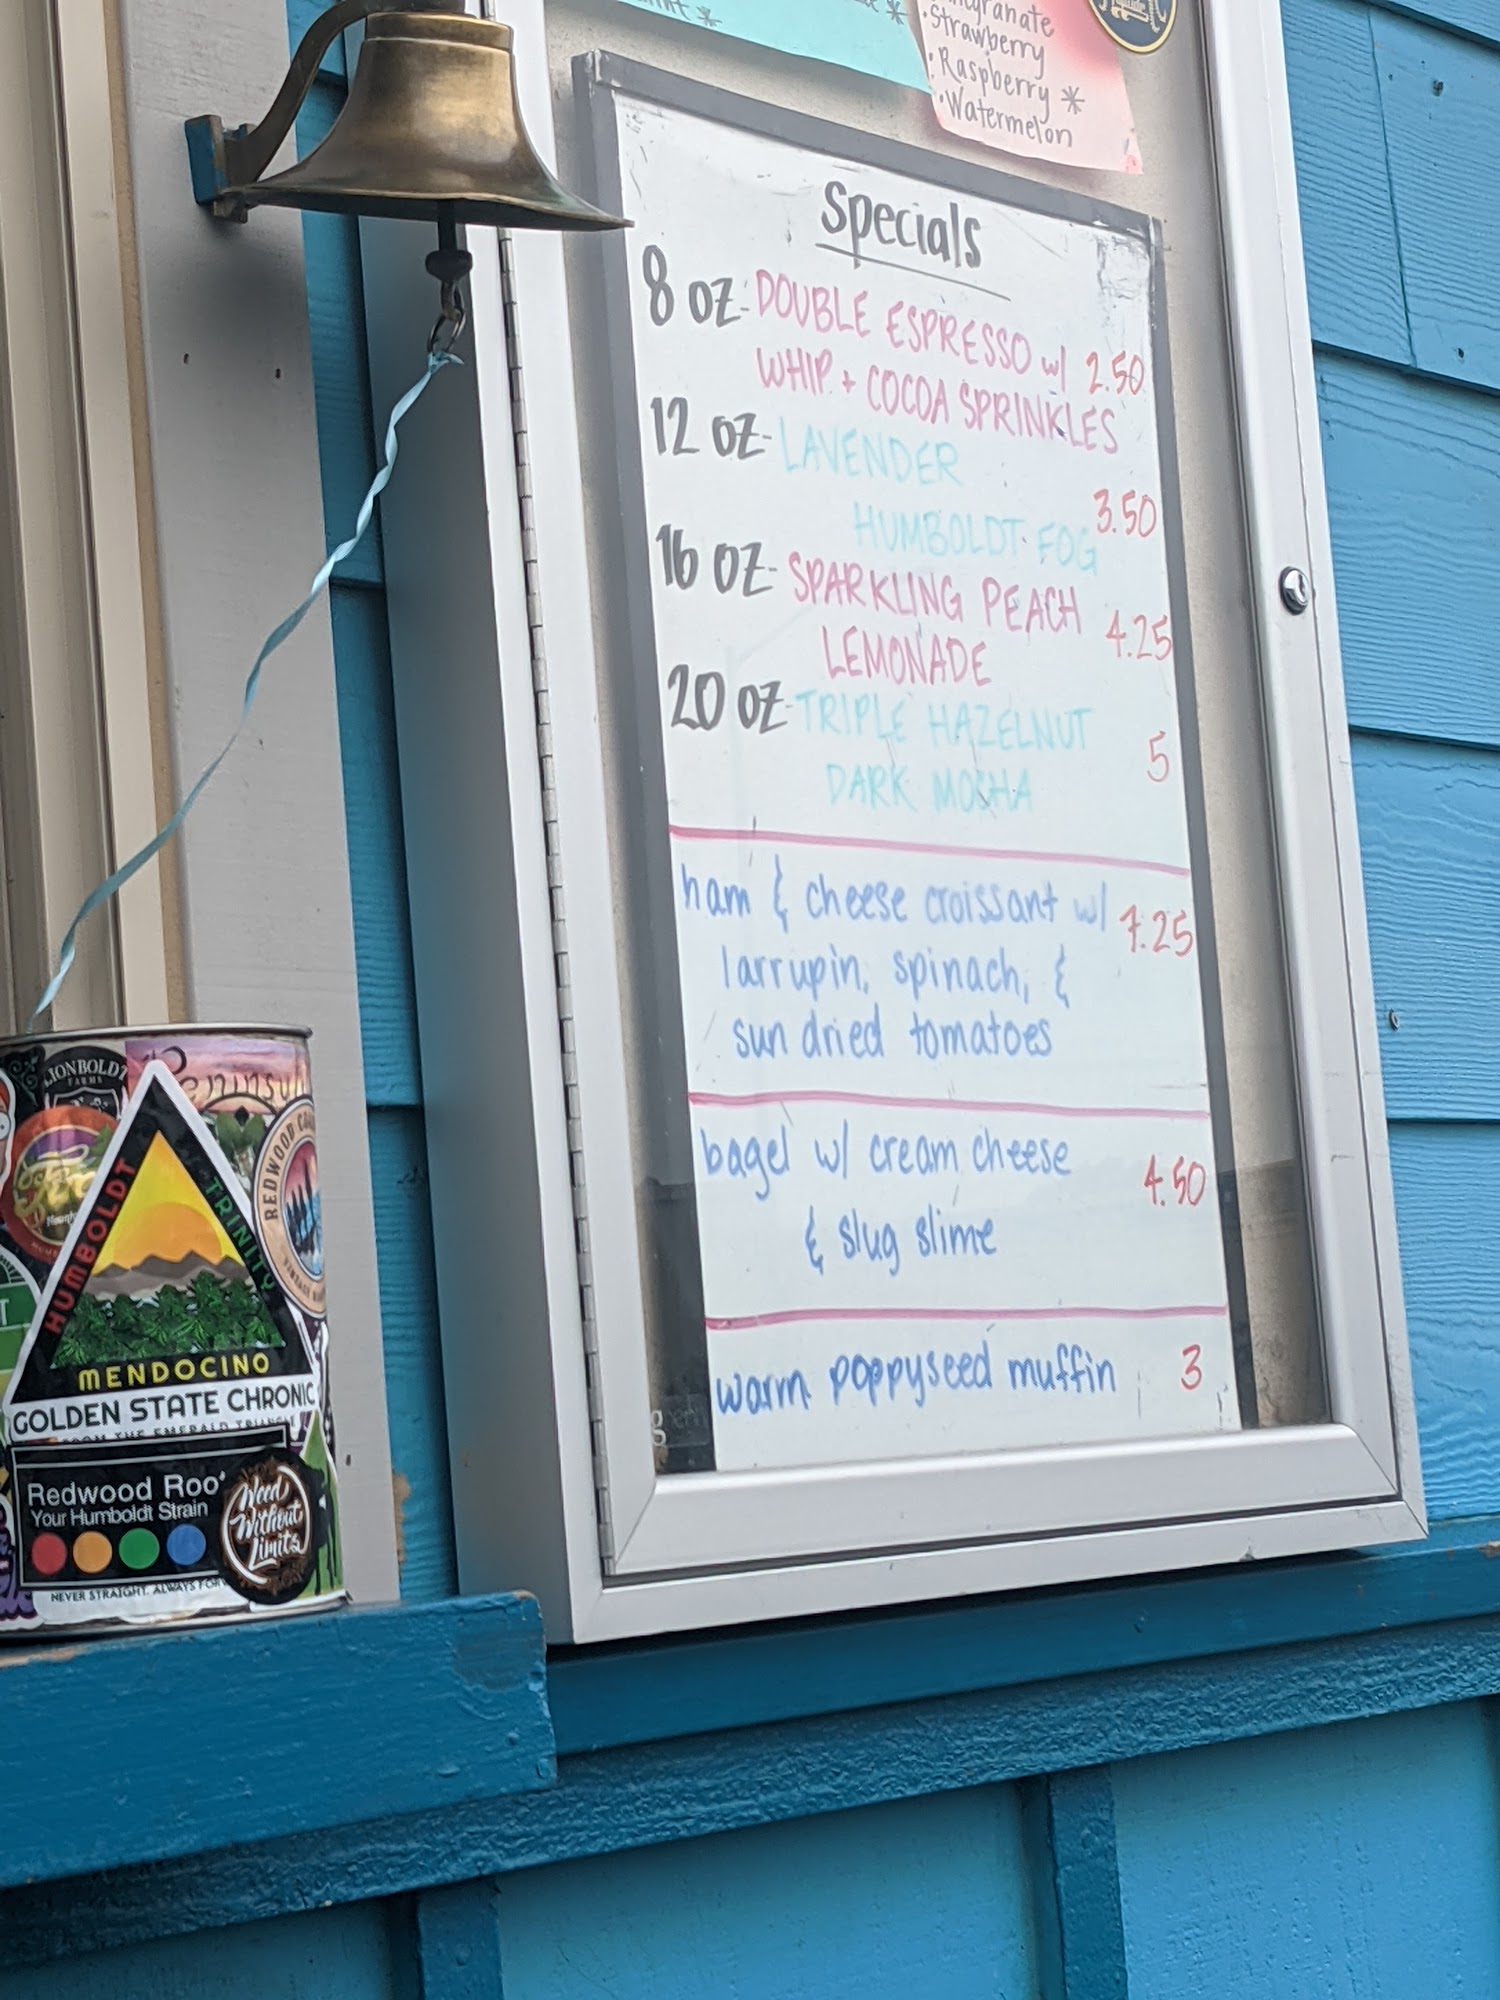 Strawberry
Raspberry *
Watermelon
Specials
8 oz- DOUBLE ESPRESSO w/ 2.50
WHIP + COCOA SPRINKLES
12 oz- LAVENDER
HUMBOLDT FOG 3.50
16 oz- SPARKLING PEACH
LEMONADE 4.25
20 oz- TRIPLE HAZELNUT
DARK MOCHA 5
ham & cheese croissant w/ 7.25
larrupin, spinach, &
sun dried tomatoes
bagel w/ cream cheese 4.50
& slug slime
warm poppyseed muffin 3
LIONBOLDT
FARMS
REDWOOD
HUMBOLDT
TRINITY
MENDOCINO
GOLDEN STATE CHRONIC
FROM THE EMERALD TRIANGLE
Redwood Roo
Your Humboldt Strain
Weed
Without
Limits
NEVER STRAIGHT. ALWAYS